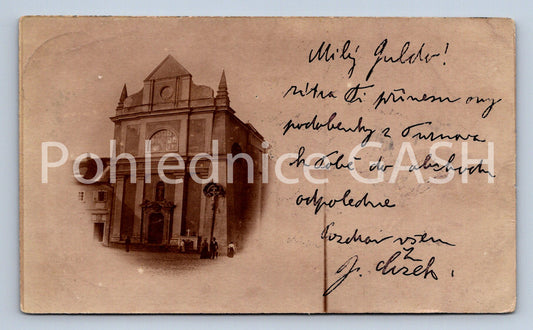 Milý Guldo!
zítra Ti přinesu ony
podobenky z Turnova
k Tobě do obchodu
odpoledne
Pozdrav všem
Pohlednice GASH